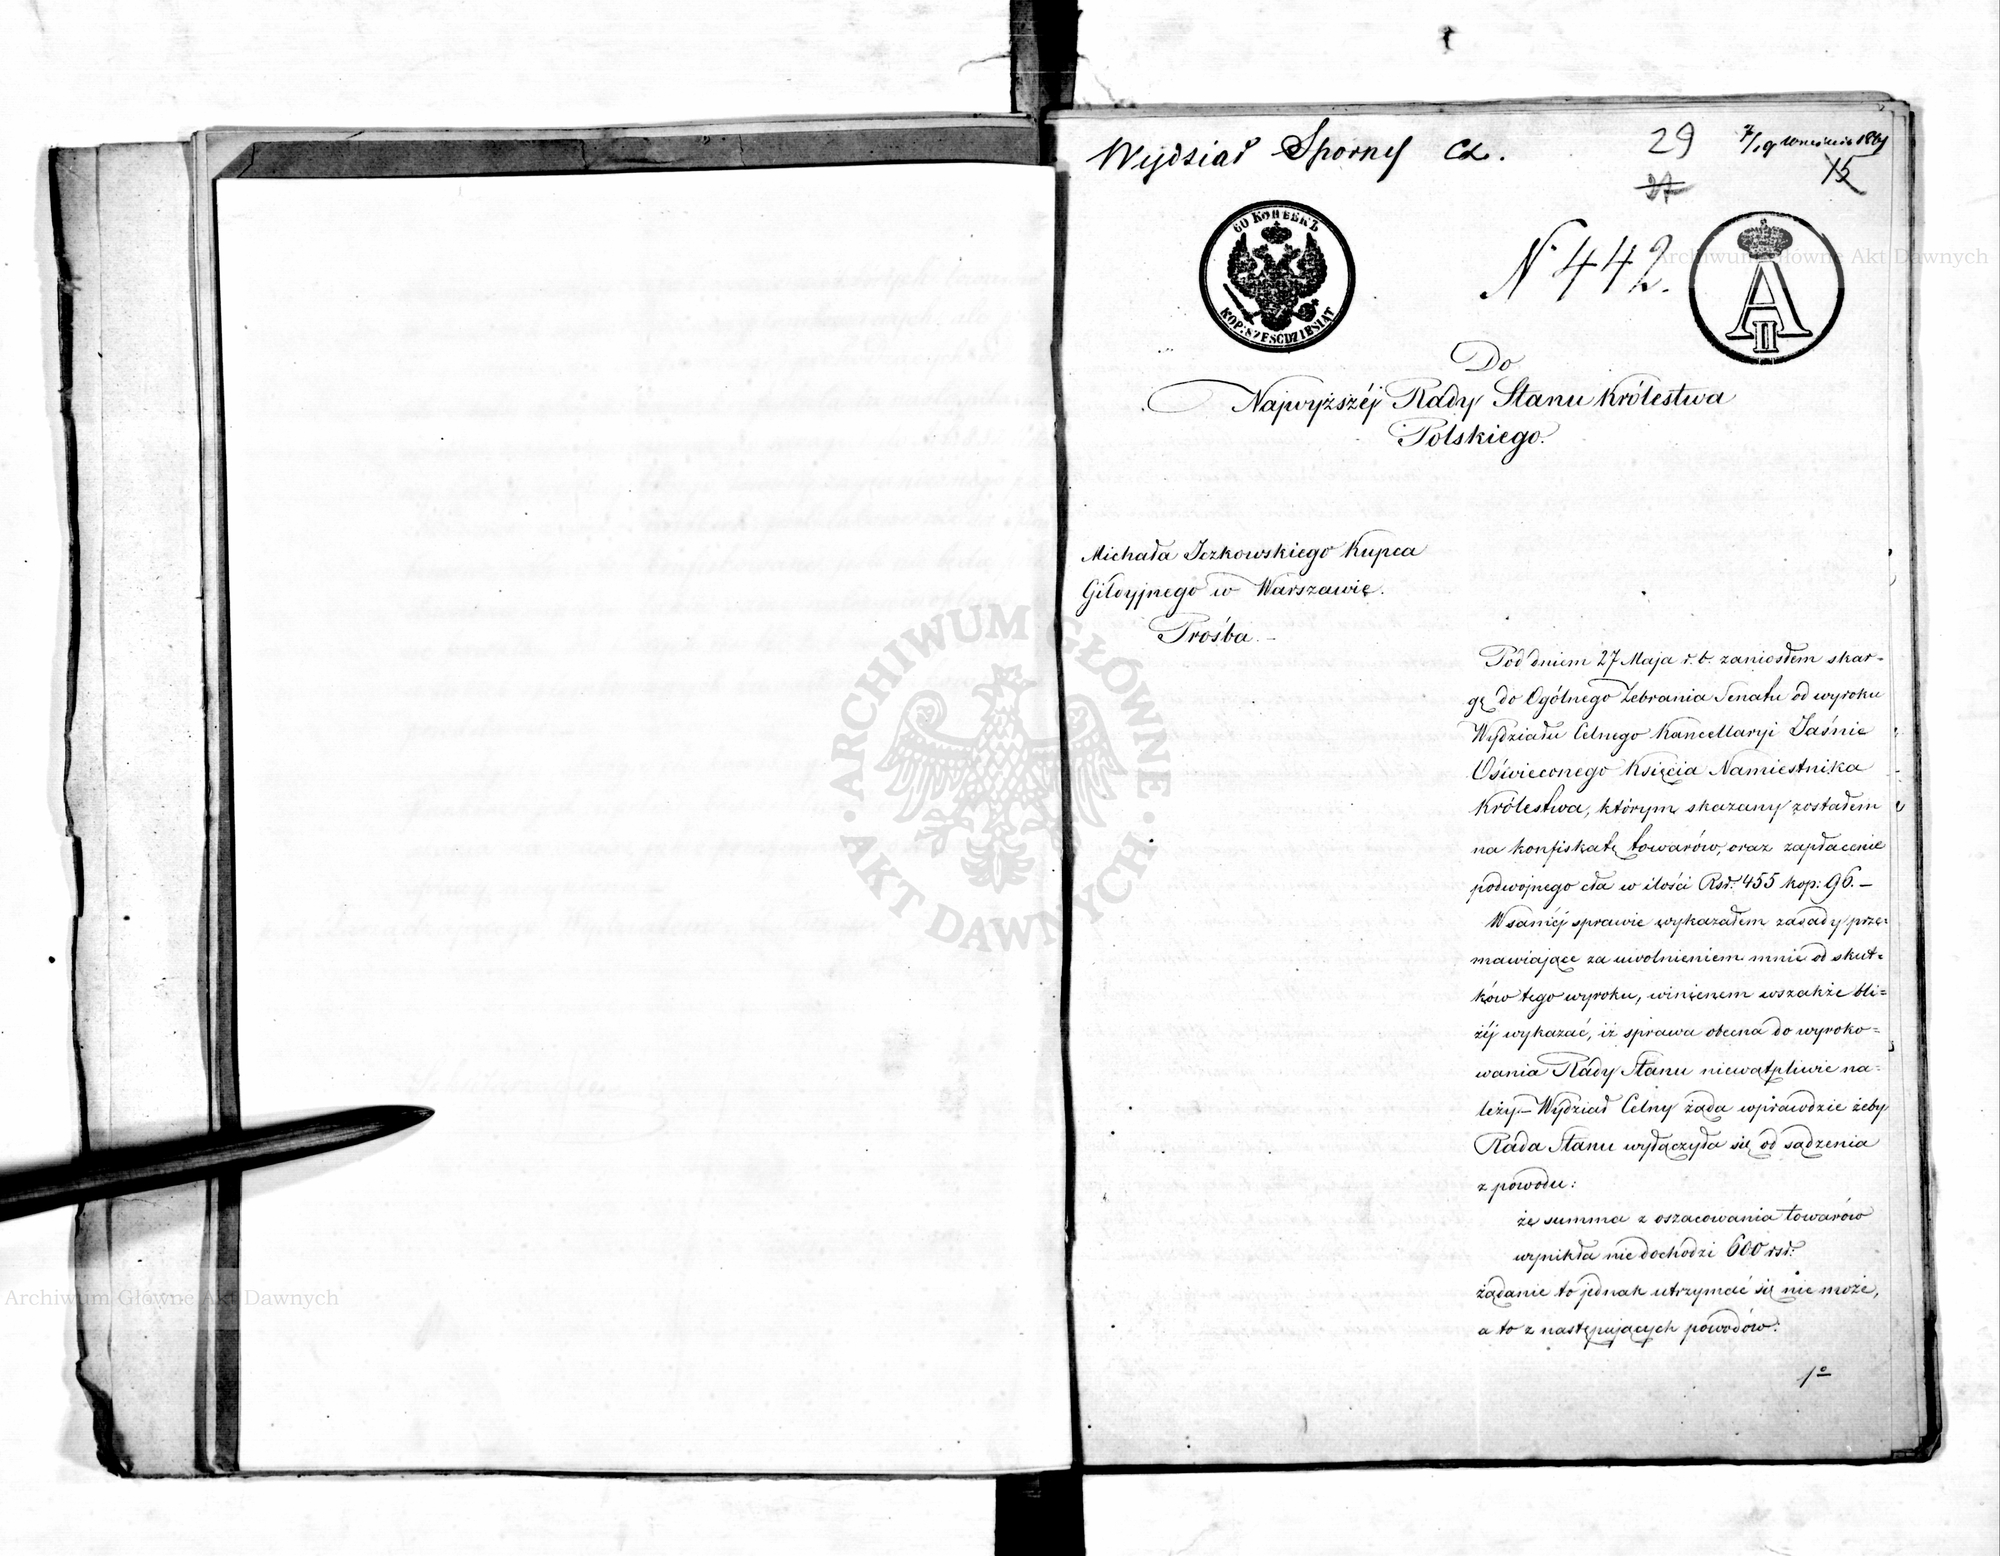 Wydział Sporny
29
7/19 Września 1861
15
60 КОПѢЕКЪ
KOP: SZEŚĆDZIESIĄT
N 442.
A II
Do
Najwyższéj Rady Stanu Królestwa
Polskiego.
Michała Iczkowskiego Kupca
Gildyjnego w Warszawie.
Prośba.
Pod dniem 27 Maja r. b. zaniosłem skar-
gę do Ogólnego Zebrania Senatu od wyroku
Wydziału Celnego Kancellaryi Jaśnie
Oświeconego Księcia Namiestnika
Królestwa, którym skazany zostałem
na konfiskatę towarów, oraz zapłacenie
podwójnego cła w ilości Rsr. 455 kop: 96. –
W saméj sprawie wykazałem zasady prze-
mawiające za uwolnieniem mnie od skut-
ków tego wyroku, winienem wszakże bli-
żéj wykazać, iż sprawa obecna do wyroko-
wania Rady Stanu niewątpliwie na-
leży. – Wydział Celny żąda wprawdzie żeby
Rada Stanu wyłączyła się od sądzenia
z powodu:
że summa z oszacowania towarów
wynikła nie dochodzi 600 rsr.
żądanie to jednak utrzymać się nie może,
a to z następujących powodów:
1º
ARCHIWUM GŁÓWNE AKT DAWNYCH
Archiwum Główne Akt Dawnych
Archiwum Główne Akt Dawnych